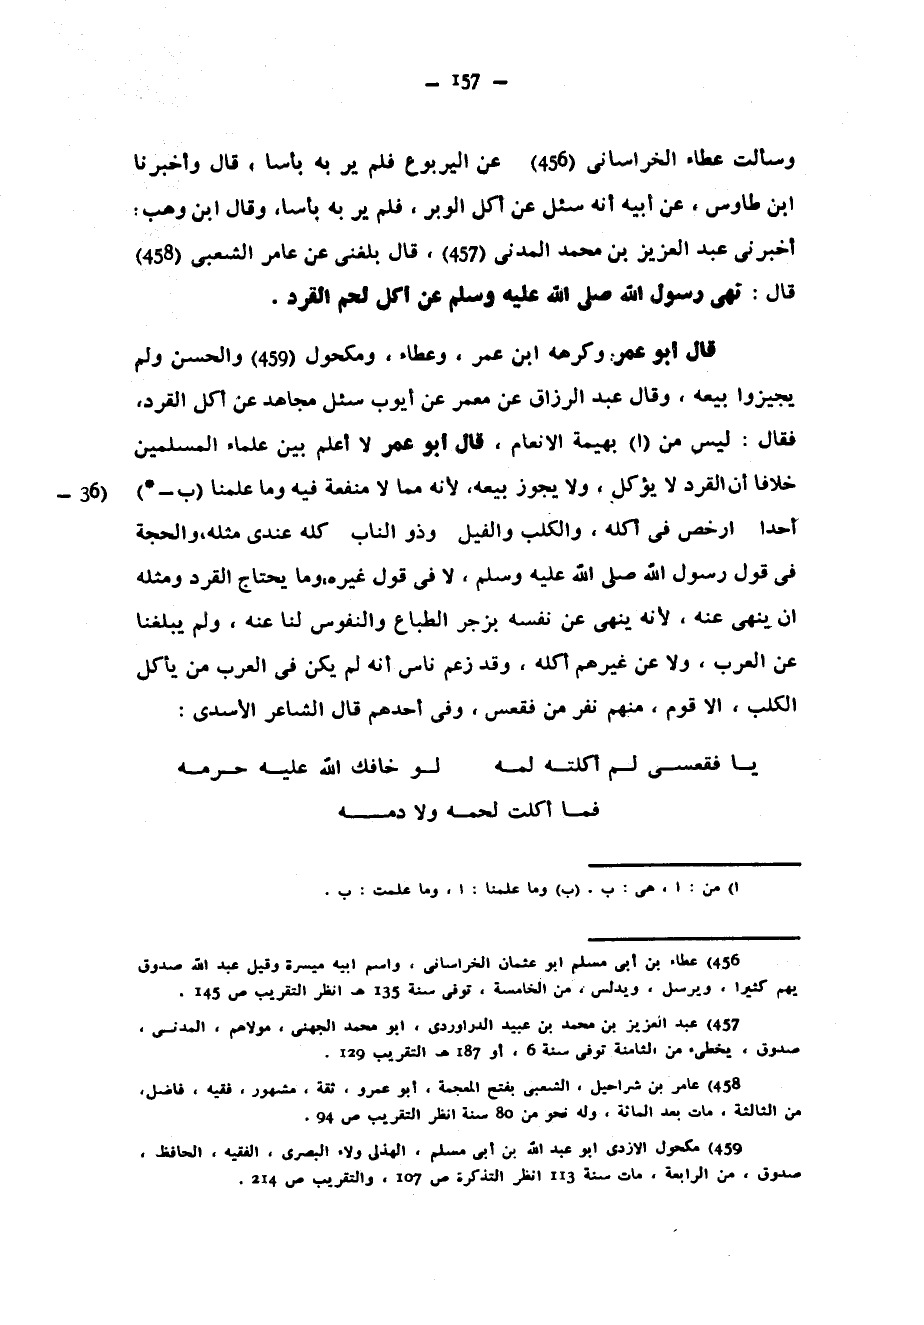 — 157 —
وسألت عطاء الخراسانى (456) عن اليربوع فلم ير به بأسا ، قال وأخبرنا
ابن طاوس ، عن أبيه أنه سئل عن أكل الوبر ، فلم ير به بأسا، وقال ابن وهب :
أخبرنى عبد العزيز بن محمد المدنى (457) ، قال بلغنى عن عامر الشعبى (458)
قال : نهى رسول الله صلى الله عليه وسلم عن أكل لحم القرد .
قال أبو عمر: وكرهه ابن عمر ، وعطاء ، ومكحول (459) والحسن ولم
يجيزوا بيعه ، وقال عبد الرزاق عن معمر عن أيوب سئل مجاهد عن أكل القرد،
فقال : ليس من (ا) بهيمة الانعام ، قال أبو عمر لا أعلم بين علماء المسلمين
خلافا أن القرد لا يؤكل ، ولا يجوز بيعه، لأنه مما لا منفعة فيه وما علمنا (ب—*) (36 —
أحدا ارخص فى أكله ، والكلب والفيل وذو الناب كله عندى مثله،والحجة
فى قول رسول الله صلى الله عليه وسلم ، لا فى قول غيره،وما يحتاج القرد ومثله
ان ينهى عنه ، لأنه ينهى عن نفسه بزجر الطباع والنفوس لنا عنه ، ولم يبلغنا
عن العرب ، ولا عن غيرهم أكله ، وقد زعم ناس أنه لم يكن فى العرب من يأكل
الكلب ، الا قوم ، منهم نفر من فقعس ، وفى أحدهم قال الشاعر الأسدى :
يـا فقعســى لـم أكلتــه لمــه لــو خافك الله عليــه حــرمــه
فمــا أكلت لحمــه ولا دمـــــه
ا) من : ا ، هى : ب . (ب) وما علمنا : ا ، وما علمت : ب .
456) عطاء بن أبى مسلم ابو عثمان الخراسانى ، واسم ابيه ميسرة وقيل عبد الله صدوق
يهم كثيرا ، ويرسل ، ويدلس ، من الخامسة ، توفى سنة 135 هـ انظر التقريب ص 145 .
457) عبد العزيز بن محمد بن عبيد الدراوردى ، ابو محمد الجهنى ، مولاهم ، المدنــى ،
صدوق ، يخطىء من الثامنة توفى سنة 6 ، أو 187 هـ التقريب 129 .
458) عامر بن شراحيل ، الشعبى بفتح المعجمة ، أبو عمرو ، ثقة ، مشهور ، فقيه ، فاضل،
من الثالثة ، مات بعد المائة ، وله نحو من 80 سنة انظر التقريب ص 94 .
459) مكحول الازدى ابو عبد الله بن أبى مسلم ، الهذلى ولاء البصرى ، الفقيه ، الحافظ ،
صدوق ، من الرابعة ، مات سنة 113 انظر التذكرة ص 107 ، والتقريب ص 214 .